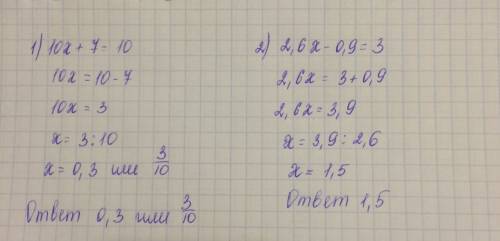 1) 10x + 7 = 10
10x = 10 - 7
10x = 3
x = 3 : 10
x = 0,3 или 3/10
Ответ 0,3 или 3/10
2) 2,6x - 0,9 = 3
2,6x = 3 + 0,9
2,6x = 3,9
x = 3,9 : 2,6
x = 1,5
Ответ 1,5